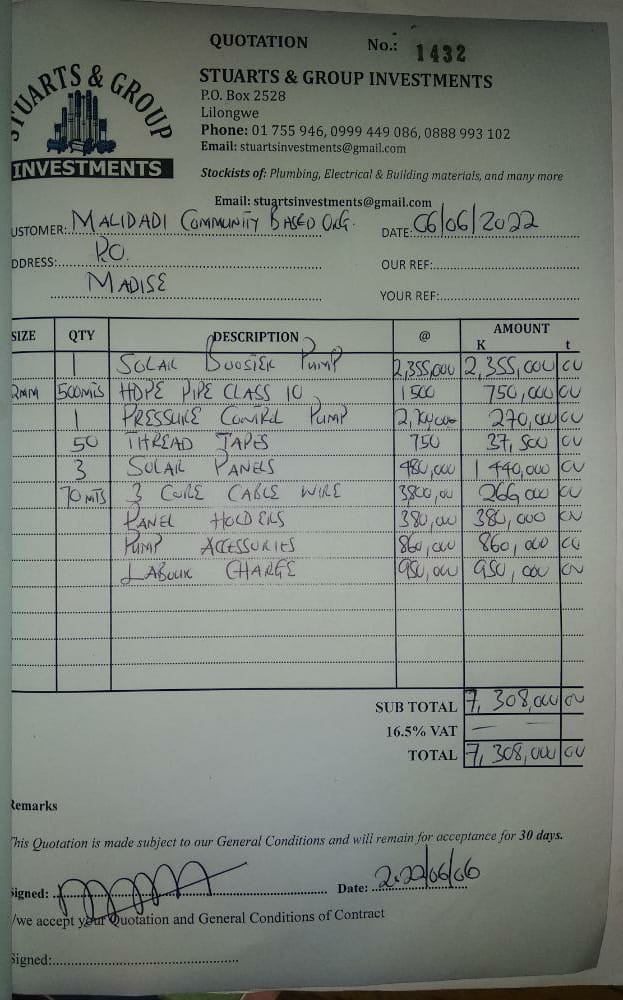 QUOTATION No.: 1432
STUARTS & GROUP
INVESTMENTS
STUARTS & GROUP INVESTMENTS
P.O. Box 2528
Lilongwe
Phone: 01 755 946, 0999 449 086, 0888 993 102
Email: stuartsinvestments@gmail.com
Stockists of: Plumbing, Electrical & Building materials, and many more
Email: stuartsinvestments@gmail.com
USTOMER: MALIDADI COMMUNITY BASED ORG. DATE: 06/06/2022
DDRESS: P.O. OUR REF:
MADISE YOUR REF:
SIZE QTY DESCRIPTION @ AMOUNT
K t
1 SOLAR BOOSTER PUMP 2,355,000 2,355,000 00
2MM 500MTS HDPE PIPE CLASS 10 1500 750,000 00
1 PRESSURE CONTROL PUMP 270,000 00
50 THREAD TAPES 750 37,500 00
3 SOLAR PANELS 480,000 1 440,000 00
70 MTS 3 CORE CABLE WIRE 3800,00 266 000 00
PANEL HOLDERS 380,000 380,000 00
PUMP ACCESSORIES 860,000 860,000 00
LABOUR CHARGE 950,000 950,000 00
SUB TOTAL 7,308,000 00
16.5% VAT —
TOTAL 7,308,000 00
Remarks
This Quotation is made subject to our General Conditions and will remain for acceptance for 30 days.
Signed: Date: 2022/06/06
/we accept your Quotation and General Conditions of Contract
Signed: